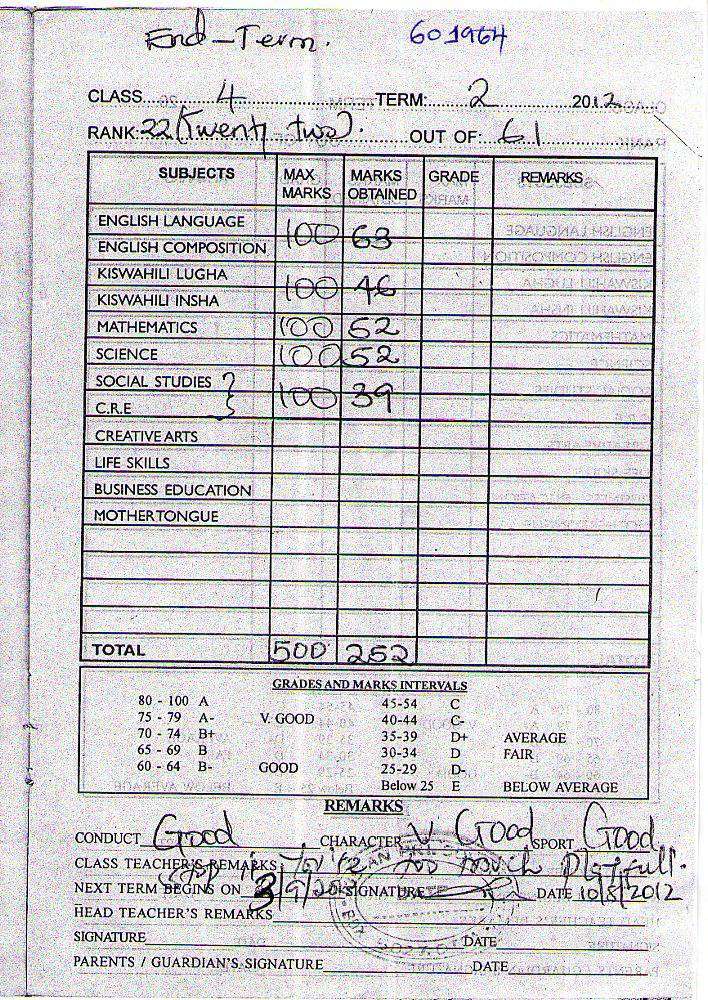 End-Term. 601964
CLASS 4 TERM: 2 2012
RANK: 22 (Twenty two). OUT OF: 61
SUBJECTS MAX MARKS MARKS OBTAINED GRADE REMARKS
ENGLISH LANGUAGE
ENGLISH COMPOSITION 100 63
KISWAHILI LUGHA
KISWAHILI INSHA 100 46
MATHEMATICS 100 52
SCIENCE 100 52
SOCIAL STUDIES
C.R.E 100 39
CREATIVE ARTS
LIFE SKILLS
BUSINESS EDUCATION
MOTHER TONGUE
TOTAL 500 252
GRADES AND MARKS INTERVALS
80 - 100 A 45-54 C
75 - 79 A- V. GOOD 40-44 C-
70 - 74 B+ 35-39 D+ AVERAGE
65 - 69 B 30-34 D FAIR
60 - 64 B- GOOD 25-29 D-
Below 25 E BELOW AVERAGE
REMARKS
CONDUCT Good CHARACTER V Good SPORT Good
CLASS TEACHER'S REMARKS too much playfull.
NEXT TERM BEGINS ON 3/9/20 SIGNATURE DATE 10/8/2012
HEAD TEACHER'S REMARKS
SIGNATURE DATE
PARENTS / GUARDIAN'S SIGNATURE DATE